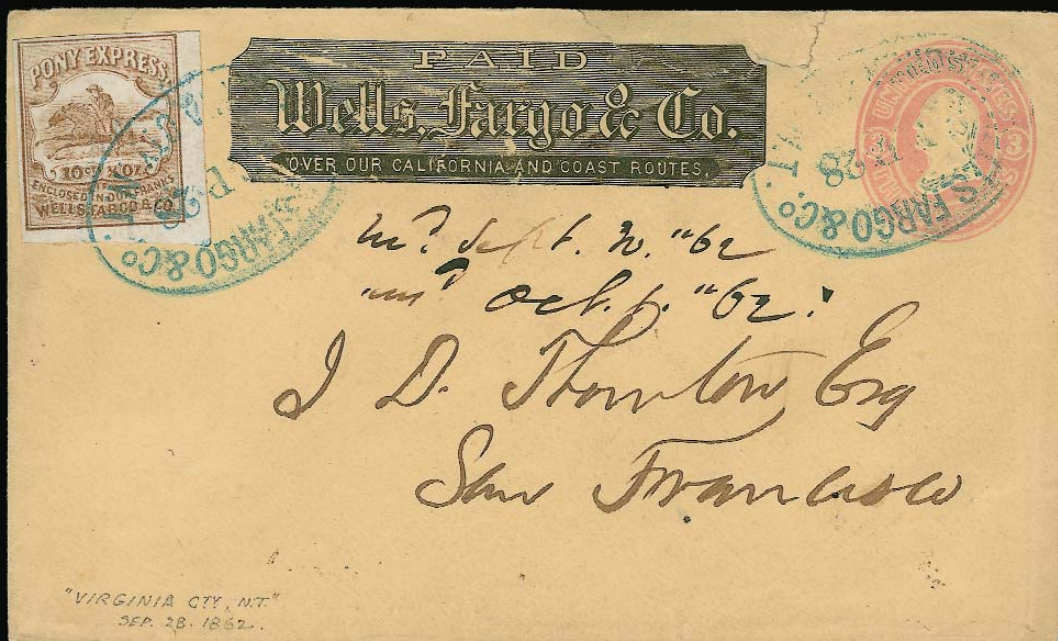 PONY EXPRESS.
10cts ½ OZ
ENCLOSED IN OUR FRANKS
WELLS, FARGO & CO
PAID
Wells, Fargo & Co.
OVER OUR CALIFORNIA AND COAST ROUTES.
FARGO & Co.
UNITED STATES
3 3
28
S FARGO & Co.
Sept. "62
Oct. "62.
J D. Thornton Esq
San Francisco
"VIRGINIA CTY, N.T."
SEP. 28. 1862.